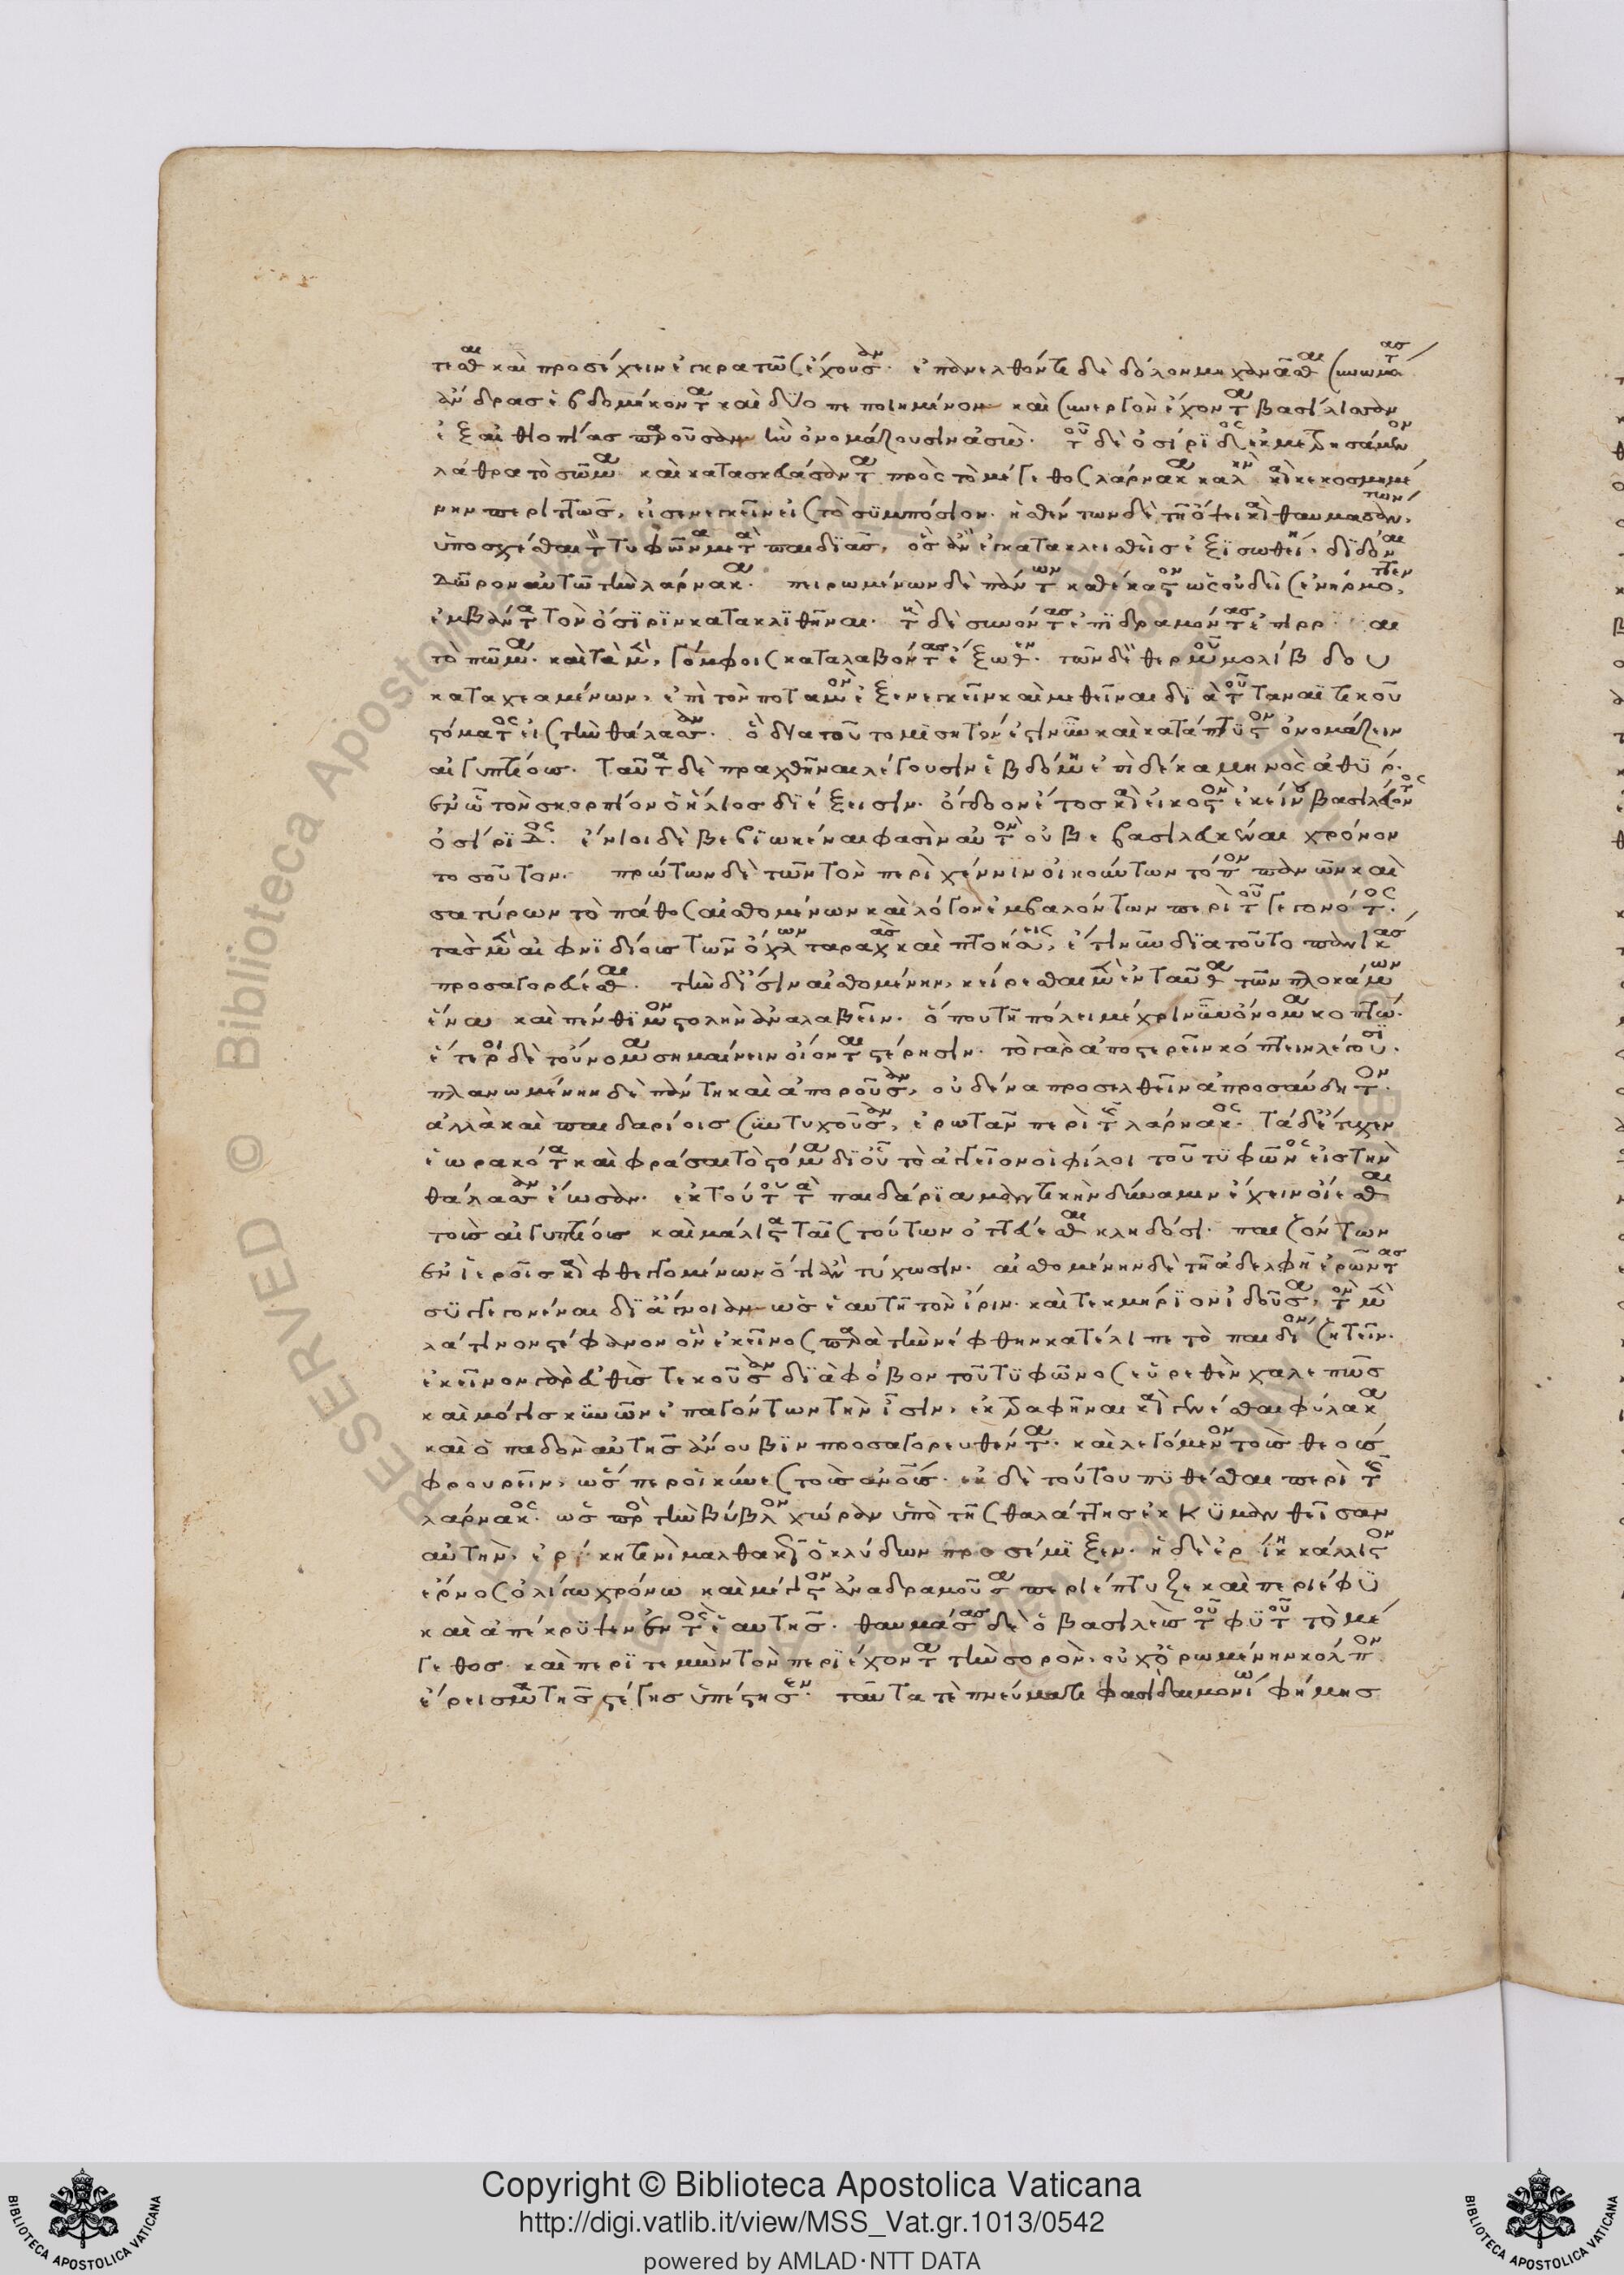 τεσθαι καὶ προσέχειν ἐγκρατῶς ἔχουσαν. ἐπανελθόντι δὲ δόλον μηχανᾶσθαι συνωμότας
ἄνδρας ἑβδομήκοντα καὶ δύο πεποιημένον καὶ συνεργὸν ἔχοντα βασίλισσαν
ἐξ αἰθιοπίας παροῦσαν ἣν ὀνομάζουσιν ἀσώ. τοῦ δὲ ὀσίριδος ἐκμετρησάμενον
λάθρα τὸ σῶμα καὶ κατασκευάσαντα πρὸς τὸ μέγεθος λάρνακα καλὴν καὶ κεκοσμημέ
νην περιττῶς, εἰσενεγκεῖν εἰς τὸ συμπόσιον. ἡσθέντων δὲ τῇ ὄψει καὶ θαυμασάντων,
ὑποσχέσθαι τὸν τυφῶνα μετὰ παιδιᾶς, ὃς ἂν ἐγκατακλεισθεὶς ἐξισωθείη, διδόναι
δῶρον αὐτῷ τὴν λάρνακα. πειρωμένων δὲ πάντων καθέκαστον ὡς οὐδεὶς ἐνήρμοττεν,
ἐμβάντα τὸν ὄσιριν κατακλιθῆναι. τοὺς δὲ συνόντας ἐπιδραμόντας ἐπιρρ αι
τὸ πῶμα. καὶ τὰ μὲν, γόμφοις καταλαβόντας ἔξωθεν. τῶν δὲ θερμοῦ μολίβδου
καταχεαμένων, ἐπὶ τὸν ποταμὸν ἐξενεγκεῖν καὶ μεθεῖναι διὰ τοῦ ταναϊτικοῦ
στόματος εἰς τὴν θάλασσαν. ὃ διὰ τοῦτο μισητὸν ἔτι νῦν καὶ κατάπτυστον ὀνομάζειν
αἰγυπτίους. ταῦτα δὲ πραχθῆναι λέγουσιν ἑβδόμῃ ἐπὶ δέκα μηνὸς ἀθύρ.
ἐν ᾧ τὸν σκορπίον ὁ ἥλιος διέξεισιν. ὄγδοον ἔτος καὶ εἰκοστὸν ἐκείνου βασιλεύοντος
ὀσίριδος. ἔνιοι δὲ βεβιωκέναι φασὶν αὐτὸν οὐ βεβασιλευκέναι χρόνον
τοσοῦτον. πρώτων δὲ τῶν τὸν περὶ χέμμιν οἰκούντων τόπον πανῶν καὶ
σατύρων τὸ πάθος αἰσθομένων καὶ λόγον ἐμβαλόντων περὶ τοῦ γεγονότος.
τὰς μὲν αἰφνιδίους τῶν ὄχλων ταραχὰς καὶ πτοήσεις, ἔτι νῦν διὰ τοῦτο πανικὰς
προσαγορεύεσθαι. τὴν δ' ἶσιν αἰσθομένην, κείρεσθαι μὲν ἐνταῦθα τῶν πλοκάμων
ἕνα καὶ πένθιμον στολὴν ἀναλαβεῖν. ὅπου τῇ πόλει μέχρι νῦν ὄνομα κοπτώ.
ἕτεροι δὲ τοὔνομα σημαίνειν οἴονται στέρησιν. τὸ γὰρ ἀποστερεῖν κόπτειν λέγουσι.
πλανωμένην δὲ πάντη καὶ ἀποροῦσαν, οὐδένα προσελθεῖν ἀπροσαύδητον.
ἀλλὰ καὶ παιδαρίοις συντυχοῦσαν, ἐρωτᾶν περὶ τῆς λάρνακος. τὰ δ' ἔτυχεν
ἑωρακότα καὶ φράσαι τὸ στόμα δι' οὗ τὸ ἀγγεῖον οἱ φίλοι τοῦ τυφῶνος εἰς τὴν
θάλασσαν ἔωσαν. ἐκ τούτου τὰ παιδάρια μαντικὴν δύναμιν ἔχειν οἴεσθαι
τοὺς αἰγυπτίους καὶ μάλιστα ταῖς τούτων ὀττεύεσθαι κληδόσι. παιζόντων
ἐν ἱεροῖς καὶ φθεγγομένων ὅτι ἂν τύχωσιν. αἰσθομένην δὲ τῇ ἀδελφῇ ἐρῶντα
συγγεγονέναι δι' ἄγνοιαν ὡς ἑαυτῇ τὸν ὄσιριν. καὶ τεκμήριον ἰδοῦσαν, τὸν με
λιλώτινον στέφανον ὃν ἐκεῖνος παρὰ τὴν νέφθην κατέλιπε τὸ παιδίον ζητεῖν.
ἐκεῖνον γὰρ εὐθὺς τεκοῦσαν διὰ φόβον τοῦ τυφῶνος εὑρεθὲν χαλεπῶς
καὶ μόγις κυνῶν ἐπαγόντων τὴν ἶσιν, ἐκτραφῆναι καὶ γενέσθαι φύλακα
καὶ ὀπαδὸν αὐτῆς ἄνουβιν προσαγορευθέντα. καὶ λεγόμενον τοὺς θεοὺς
φρουρεῖν, ὥσπερ οἱ κύνες τοὺς ἀνούς. ἐκ δὲ τούτου πυθέσθαι περὶ τῆς
λάρνακος. ὡς πρὸς τὴν βύβλον χώραν ὑπὸ τῆς θαλάττης ἐκκυμανθεῖσαν
αὐτὴν, ἐρίκῃ τινὶ μαλθακῶς ὁ κλύδων προσέμιξεν. ἡ δὲ ἐρίκη κάλλιστον
ἔρνος ὀλίγω χρόνω καὶ μέγιστον ἀναδραμοῦσα περιέπτυξε καὶ περιέφυ
καὶ ἀπέκρυψεν ἐντὸς ἑαυτῆς. θαυμάσας δὲ ὁ βασιλεὺς τοῦ φυτοῦ τὸ μέ
γεθος. καὶ περιτεμὼν τὸν περιέχοντα τὴν σορὸν, οὐχ ὁρωμένην κολπον
ἔρεισμα τῆς στέγης ὑπέστησεν. ταῦτα τὲ πνεύματι φασὶ δαιμονίω φήμης